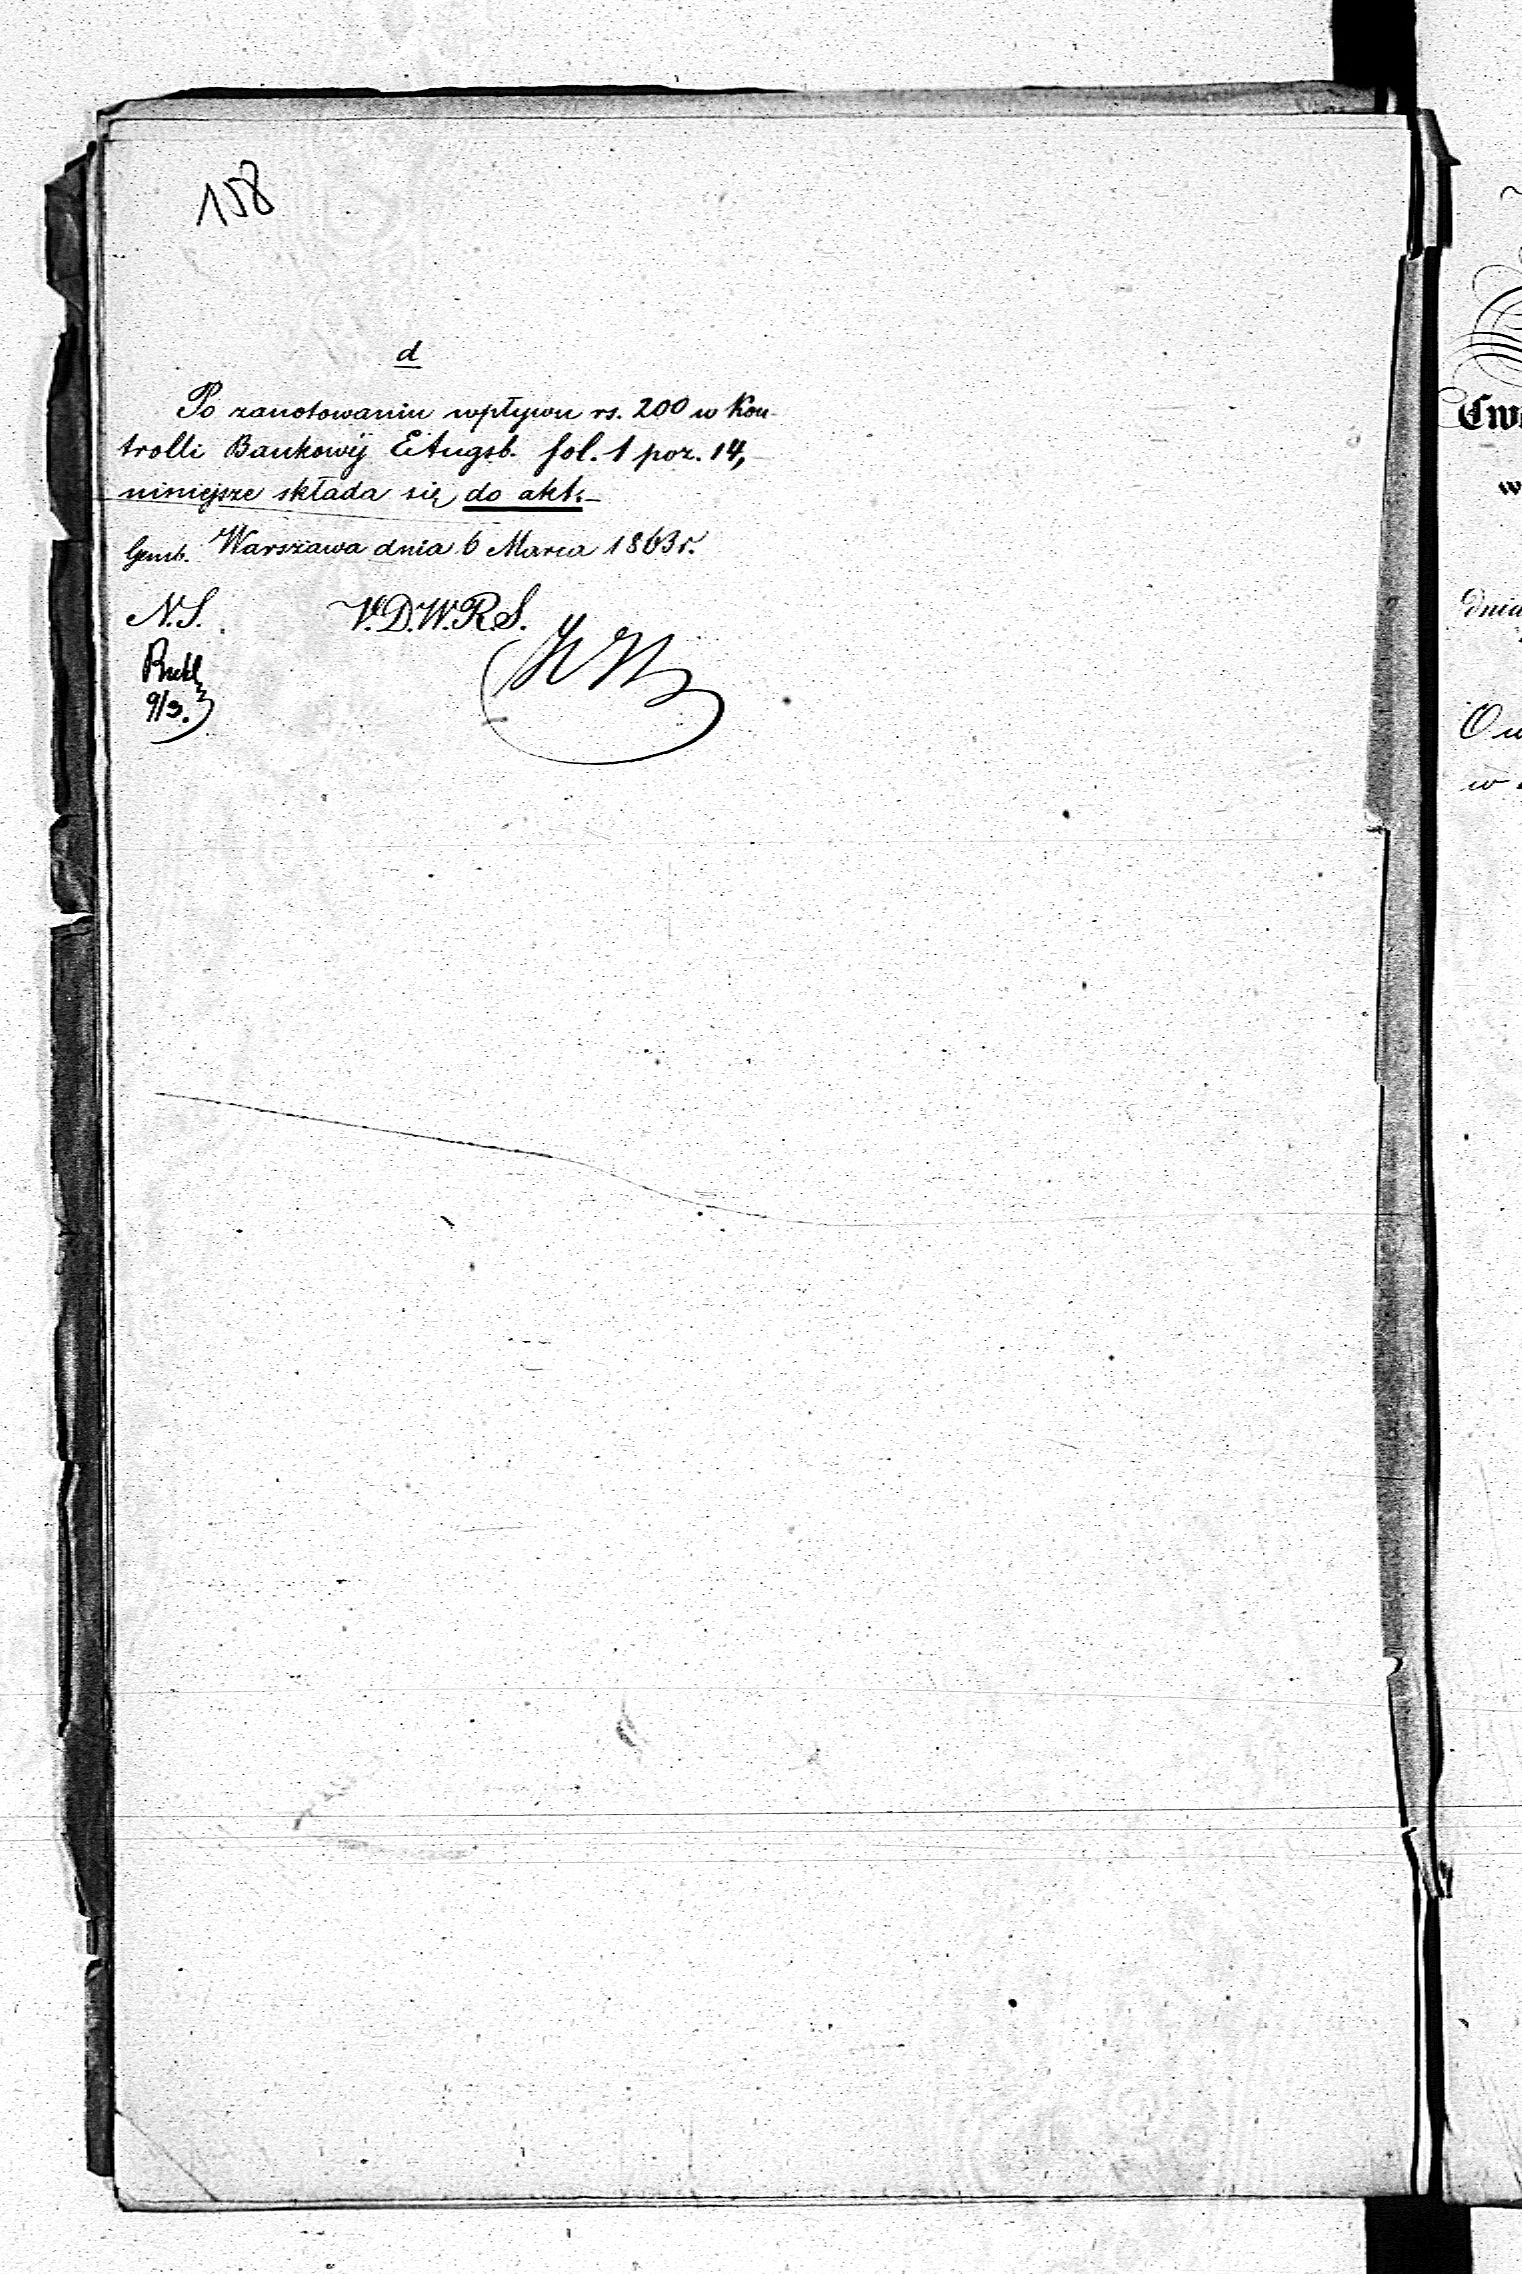 158
d
Po zanotowaniu wpływu rs. 200 w Kon-
trolli Bankowéj EAugsb. fol. 1 poz. 14,
niniejsze składa się do akt.-
Warszawa dnia 6 Marca 1863 r.
N.S. V.D.W.R.S.
9/3.
Cw
w
dnia
O w
w